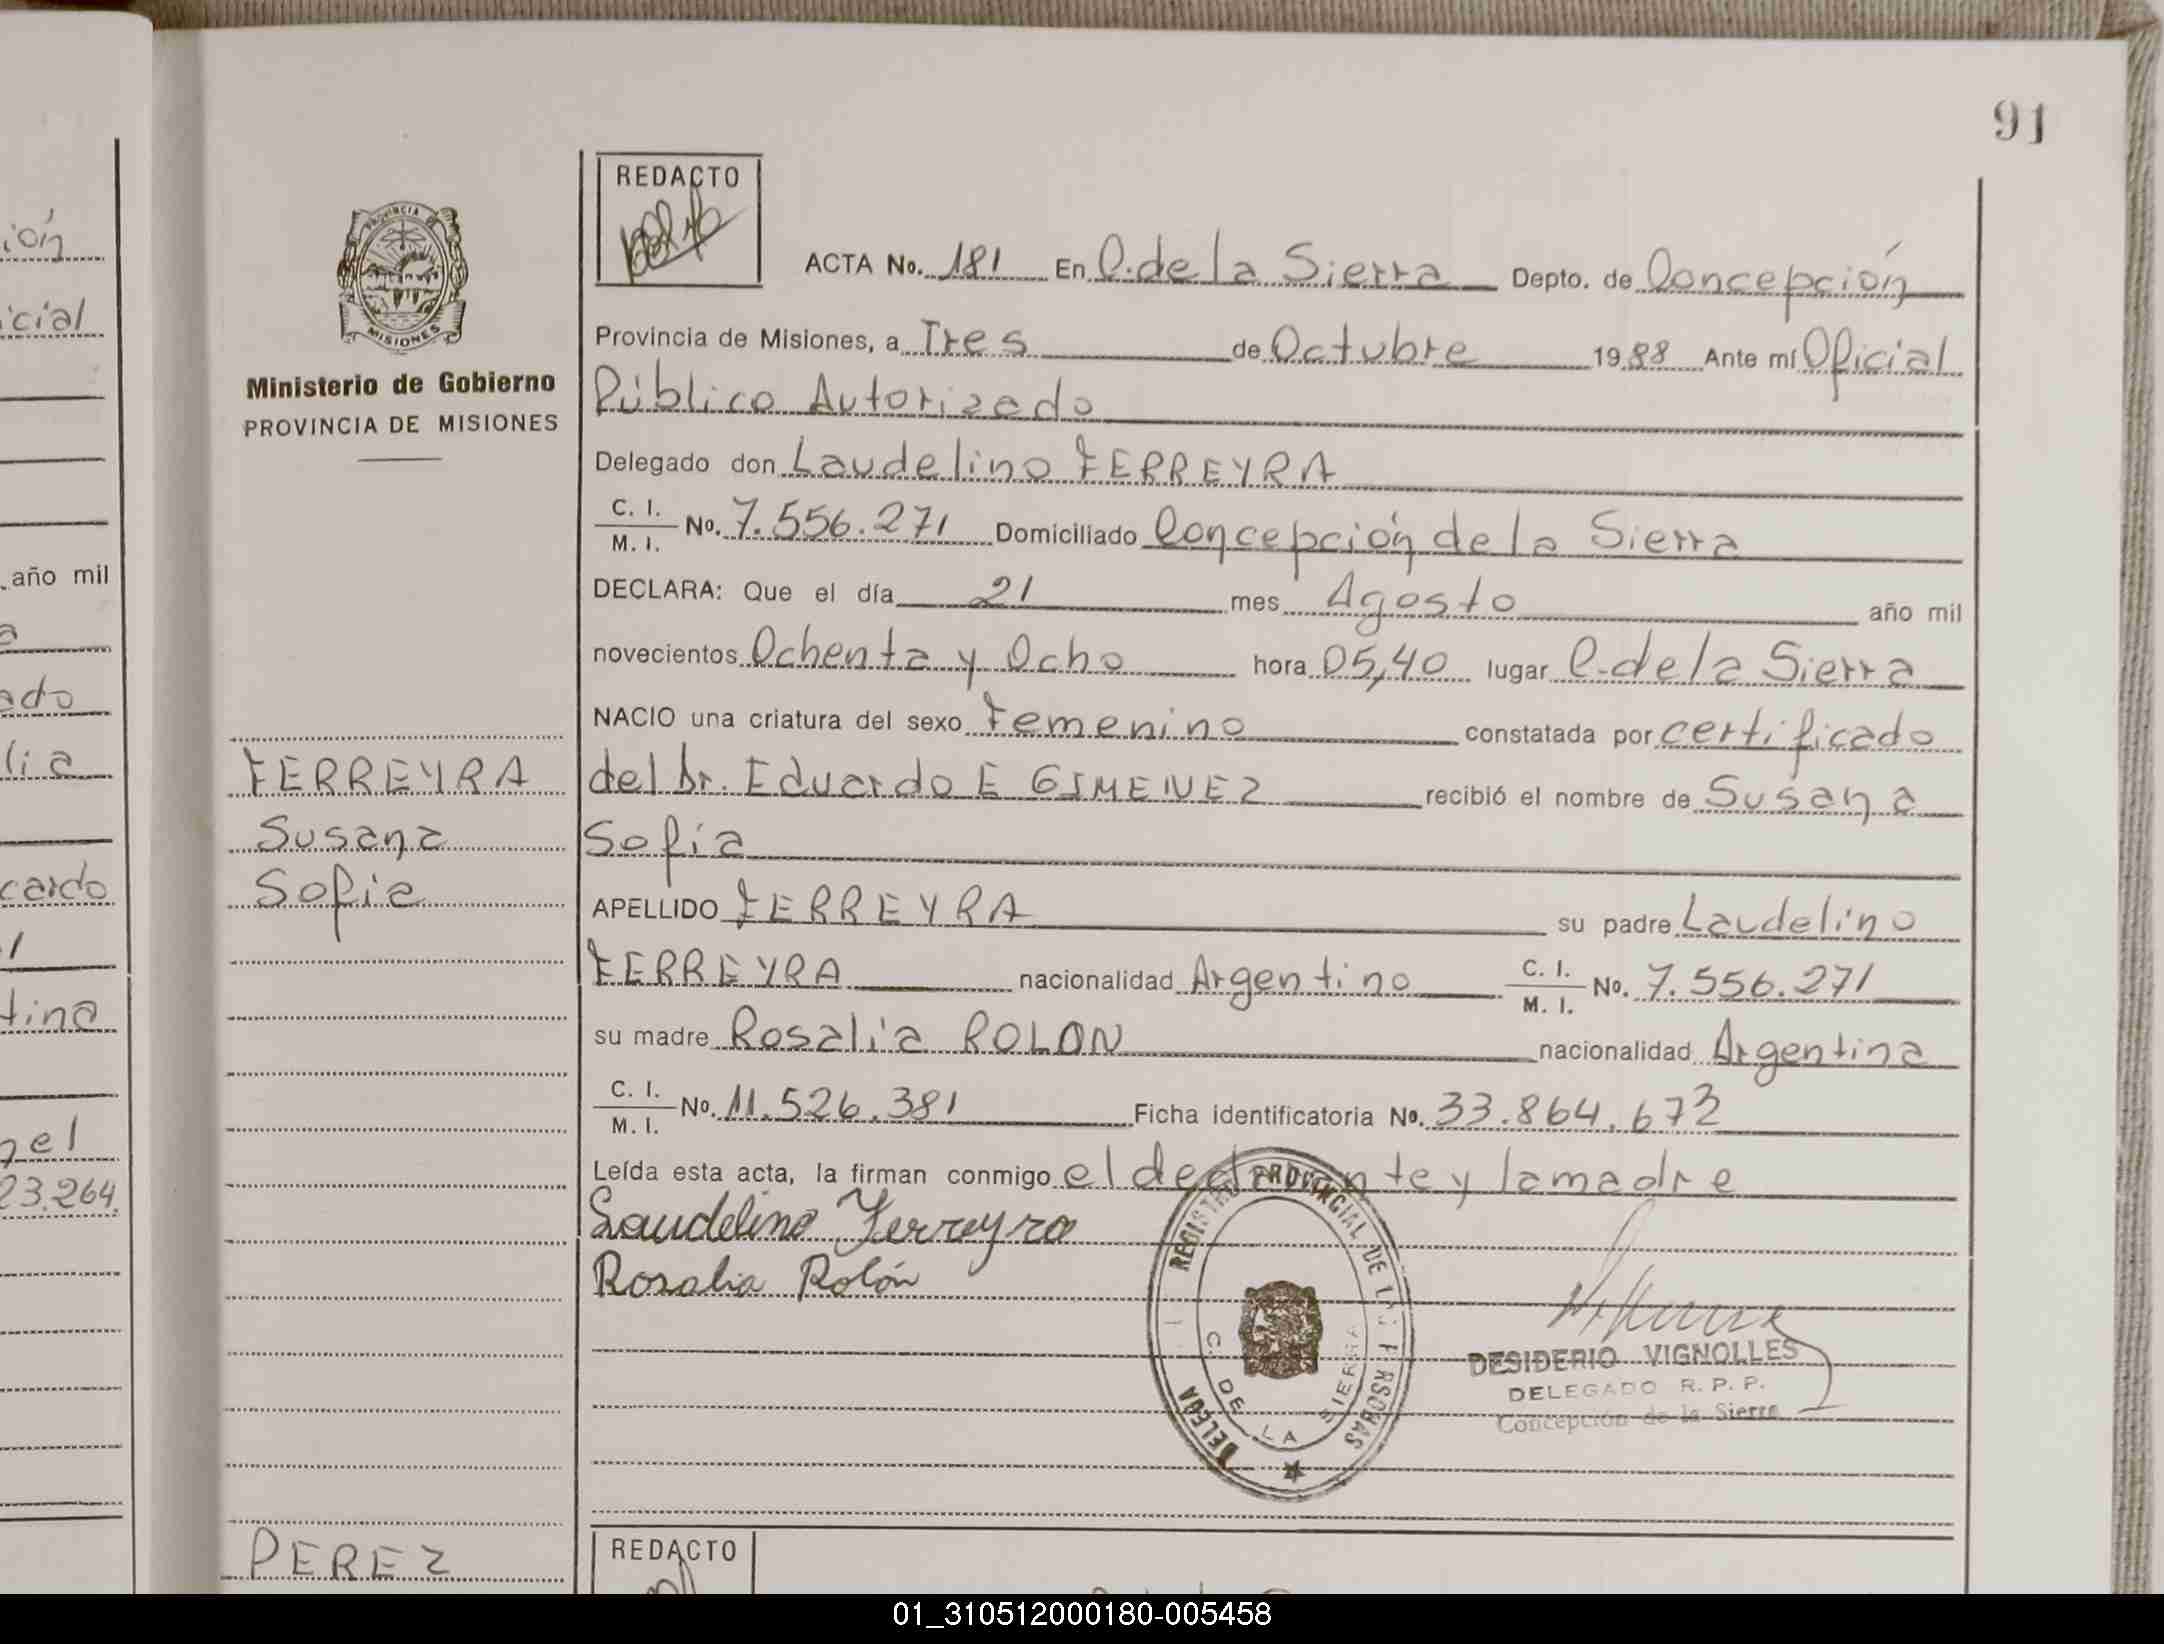 91
ión
icial
año mil
a
ado
lia
cardo
l
tina
nel
23.264.
PROVINCIA DE
MISIONES
Ministerio de Gobierno
PROVINCIA DE MISIONES
FERREYRA
Susana
Sofia
PEREZ
REDACTO
ACTA No. 181 En C. de la Sierra Depto. de Concepción
Provincia de Misiones, a Tres de Octubre 1988 Ante mí Oficial
Público Autorizado
Delegado don Laudelino FERREYRA
C. I.
M. I. No. 7.556.271 Domiciliado Concepción de la Sierra
DECLARA: Que el día 21 mes Agosto año mil
novecientos Ochenta y Ocho hora 05,40 lugar C. de la Sierra
NACIO una criatura del sexo Femenino constatada por certificado
del Dr. Eduardo E GIMENEZ recibió el nombre de Susana
Sofía
APELLIDO FERREYRA su padre Laudelino
FERREYRA nacionalidad Argentino C. I. M. I. No. 7.556.271
su madre Rosalia ROLON nacionalidad Argentina
C. I.
M. I. No. 11.526.381 Ficha identificatoria No. 33.864.673
Leída esta acta, la firman conmigo el declarante y la madre
Laudelino Ferreyra
Rosalia Rolón
REGISTRO PROVINCIAL DE LAS PERSONAS
DELEGA
C. DE LA SIERRA
DESIDERIO VIGNOLLES
DELEGADO R. P. P.
Concepción de la Sierra
REDACTO
01_310512000180-005458